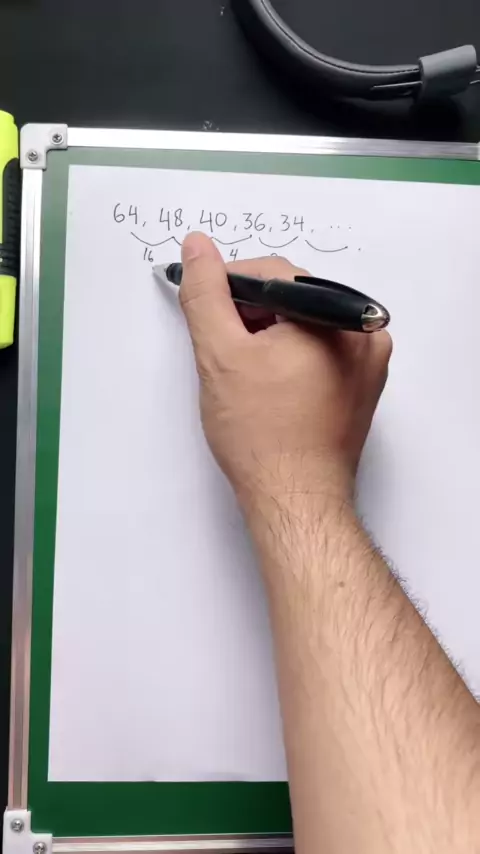 64, 48, 40, 36, 34, ...
16 4